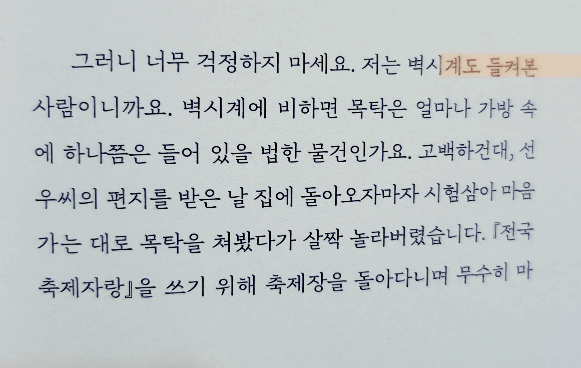 그러니 너무 걱정하지 마세요. 저는 벽시계도 들켜본
사람이니까요. 벽시계에 비하면 목탁은 얼마나 가방 속
에 하나쯤은 들어 있을 법한 물건인가요. 고백하건대, 선
우씨의 편지를 받은 날 집에 돌아오자마자 시험삼아 마음
가는 대로 목탁을 쳐봤다가 살짝 놀라버렸습니다. 『전국
축제자랑』을 쓰기 위해 축제장을 돌아다니며 무수히 마